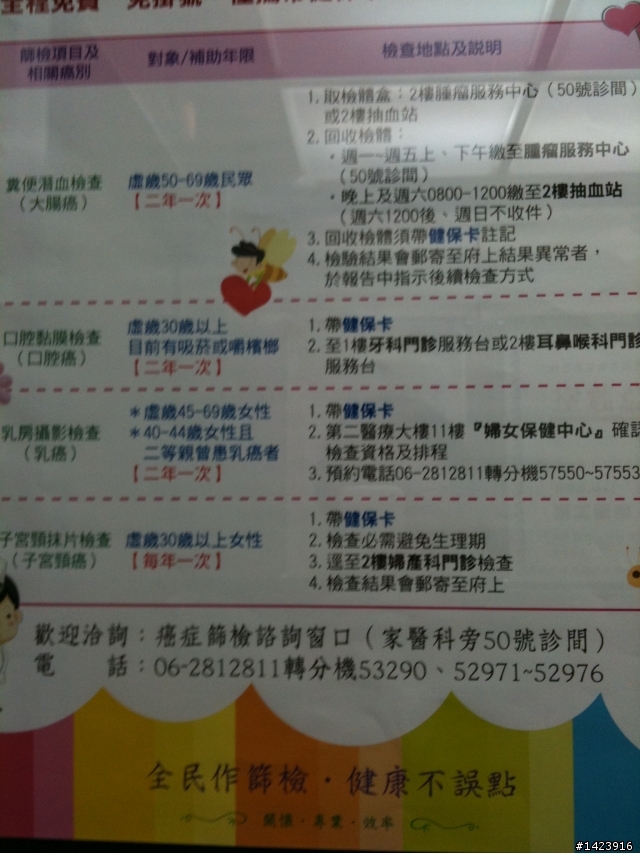 全程免費 免掛號
篩檢項目及
相關癌別
對象/補助年限
檢查地點及說明
糞便潛血檢查
（大腸癌）
虛歲50-69歲民眾
【二年一次】
1. 取檢體盒：2樓腫瘤服務中心（50號診間）
或2樓抽血站
2. 回收檢體：
・週一~週五上、下午繳至腫瘤服務中心
（50號診間）
・晚上及週六0800-1200繳至2樓抽血站
（週六1200後、週日不收件）
3. 回收檢體須帶健保卡註記
4. 檢驗結果會郵寄至府上結果異常者，
於報告中指示後續檢查方式
口腔黏膜檢查
（口腔癌）
虛歲30歲以上
目前有吸菸或嚼檳榔
【二年一次】
1. 帶健保卡
2. 至1樓牙科門診服務台或2樓耳鼻喉科門診
服務台
乳房攝影檢查
（乳癌）
＊虛歲45-69歲女性
＊40-44歲女性且
二等親曾患乳癌者
【二年一次】
1. 帶健保卡
2. 第二醫療大樓11樓『婦女保健中心』確認
檢查資格及排程
3. 預約電話06-2812811轉分機57550~57553
子宮頸抹片檢查
（子宮頸癌）
虛歲30歲以上女性
【每年一次】
1. 帶健保卡
2. 檢查必需避免生理期
3. 逕至2樓婦產科門診檢查
4. 檢查結果會郵寄至府上
歡迎洽詢：癌症篩檢諮詢窗口（家醫科旁50號診間）
電 話：06-2812811轉分機53290、52971~52976
全民作篩檢・健康不誤點
關懷・專業・效率
#1423916